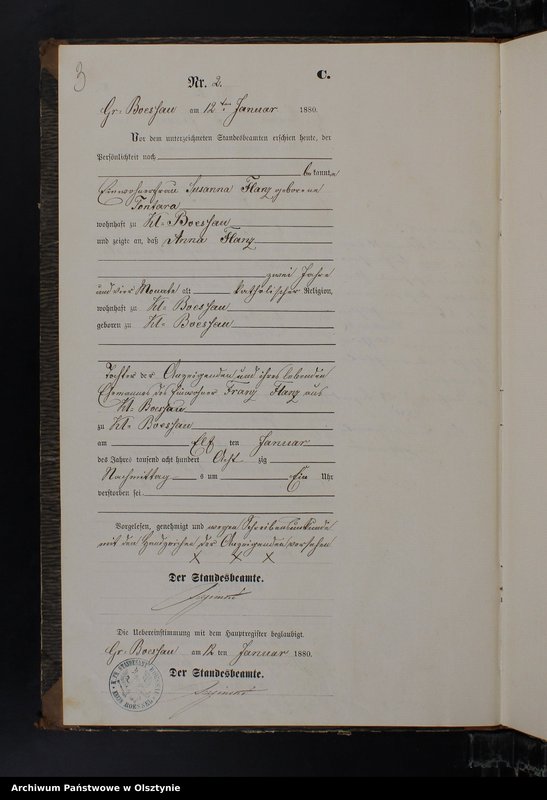 3
C.
Nr. 2.
Gr. Boessau am 12ten Januar 1880.
Vor dem unterzeichneten Standesbeamten erschien heute, der
Persönlichkeit nach
be kannt,
Einwohnerfrau Susanna Flanz geborene
wohnhaft zu Kl. Boessau
und zeigte an, daß Anna Flanz
zwei Jahre
und vier Monate alt katholischer Religion,
wohnhaft zu Kl. Boessau
geboren zu Kl. Boessau
Tochter der Anzeigenden und ihres lebenden
Ehemannes des Einwohner Franz Flanz aus
Kl. Boessau
zu Kl. Boessau
am Elf ten Januar
des Jahres tausend acht hundert Acht zig
Nachmittag s um Ein Uhr
verstorben sei
Vorgelesen, genehmigt und wegen Schreibensunkunde
mit den Handzeichen der Anzeigenden versehen
X X X
Der Standesbeamte.
Die Uebereinstimmung mit dem Hauptregister beglaubigt.
Gr. Boessau am 12 ten Januar 1880.
Der Standesbeamte.
Archiwum Państwowe w Olsztynie